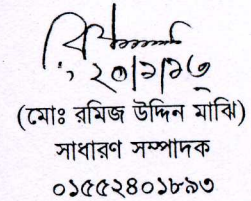 (মোঃ রমিজ উদ্দিন মাঝি)
সাধারণ সম্পাদক
০১৫৫২৪০১৮৯৩